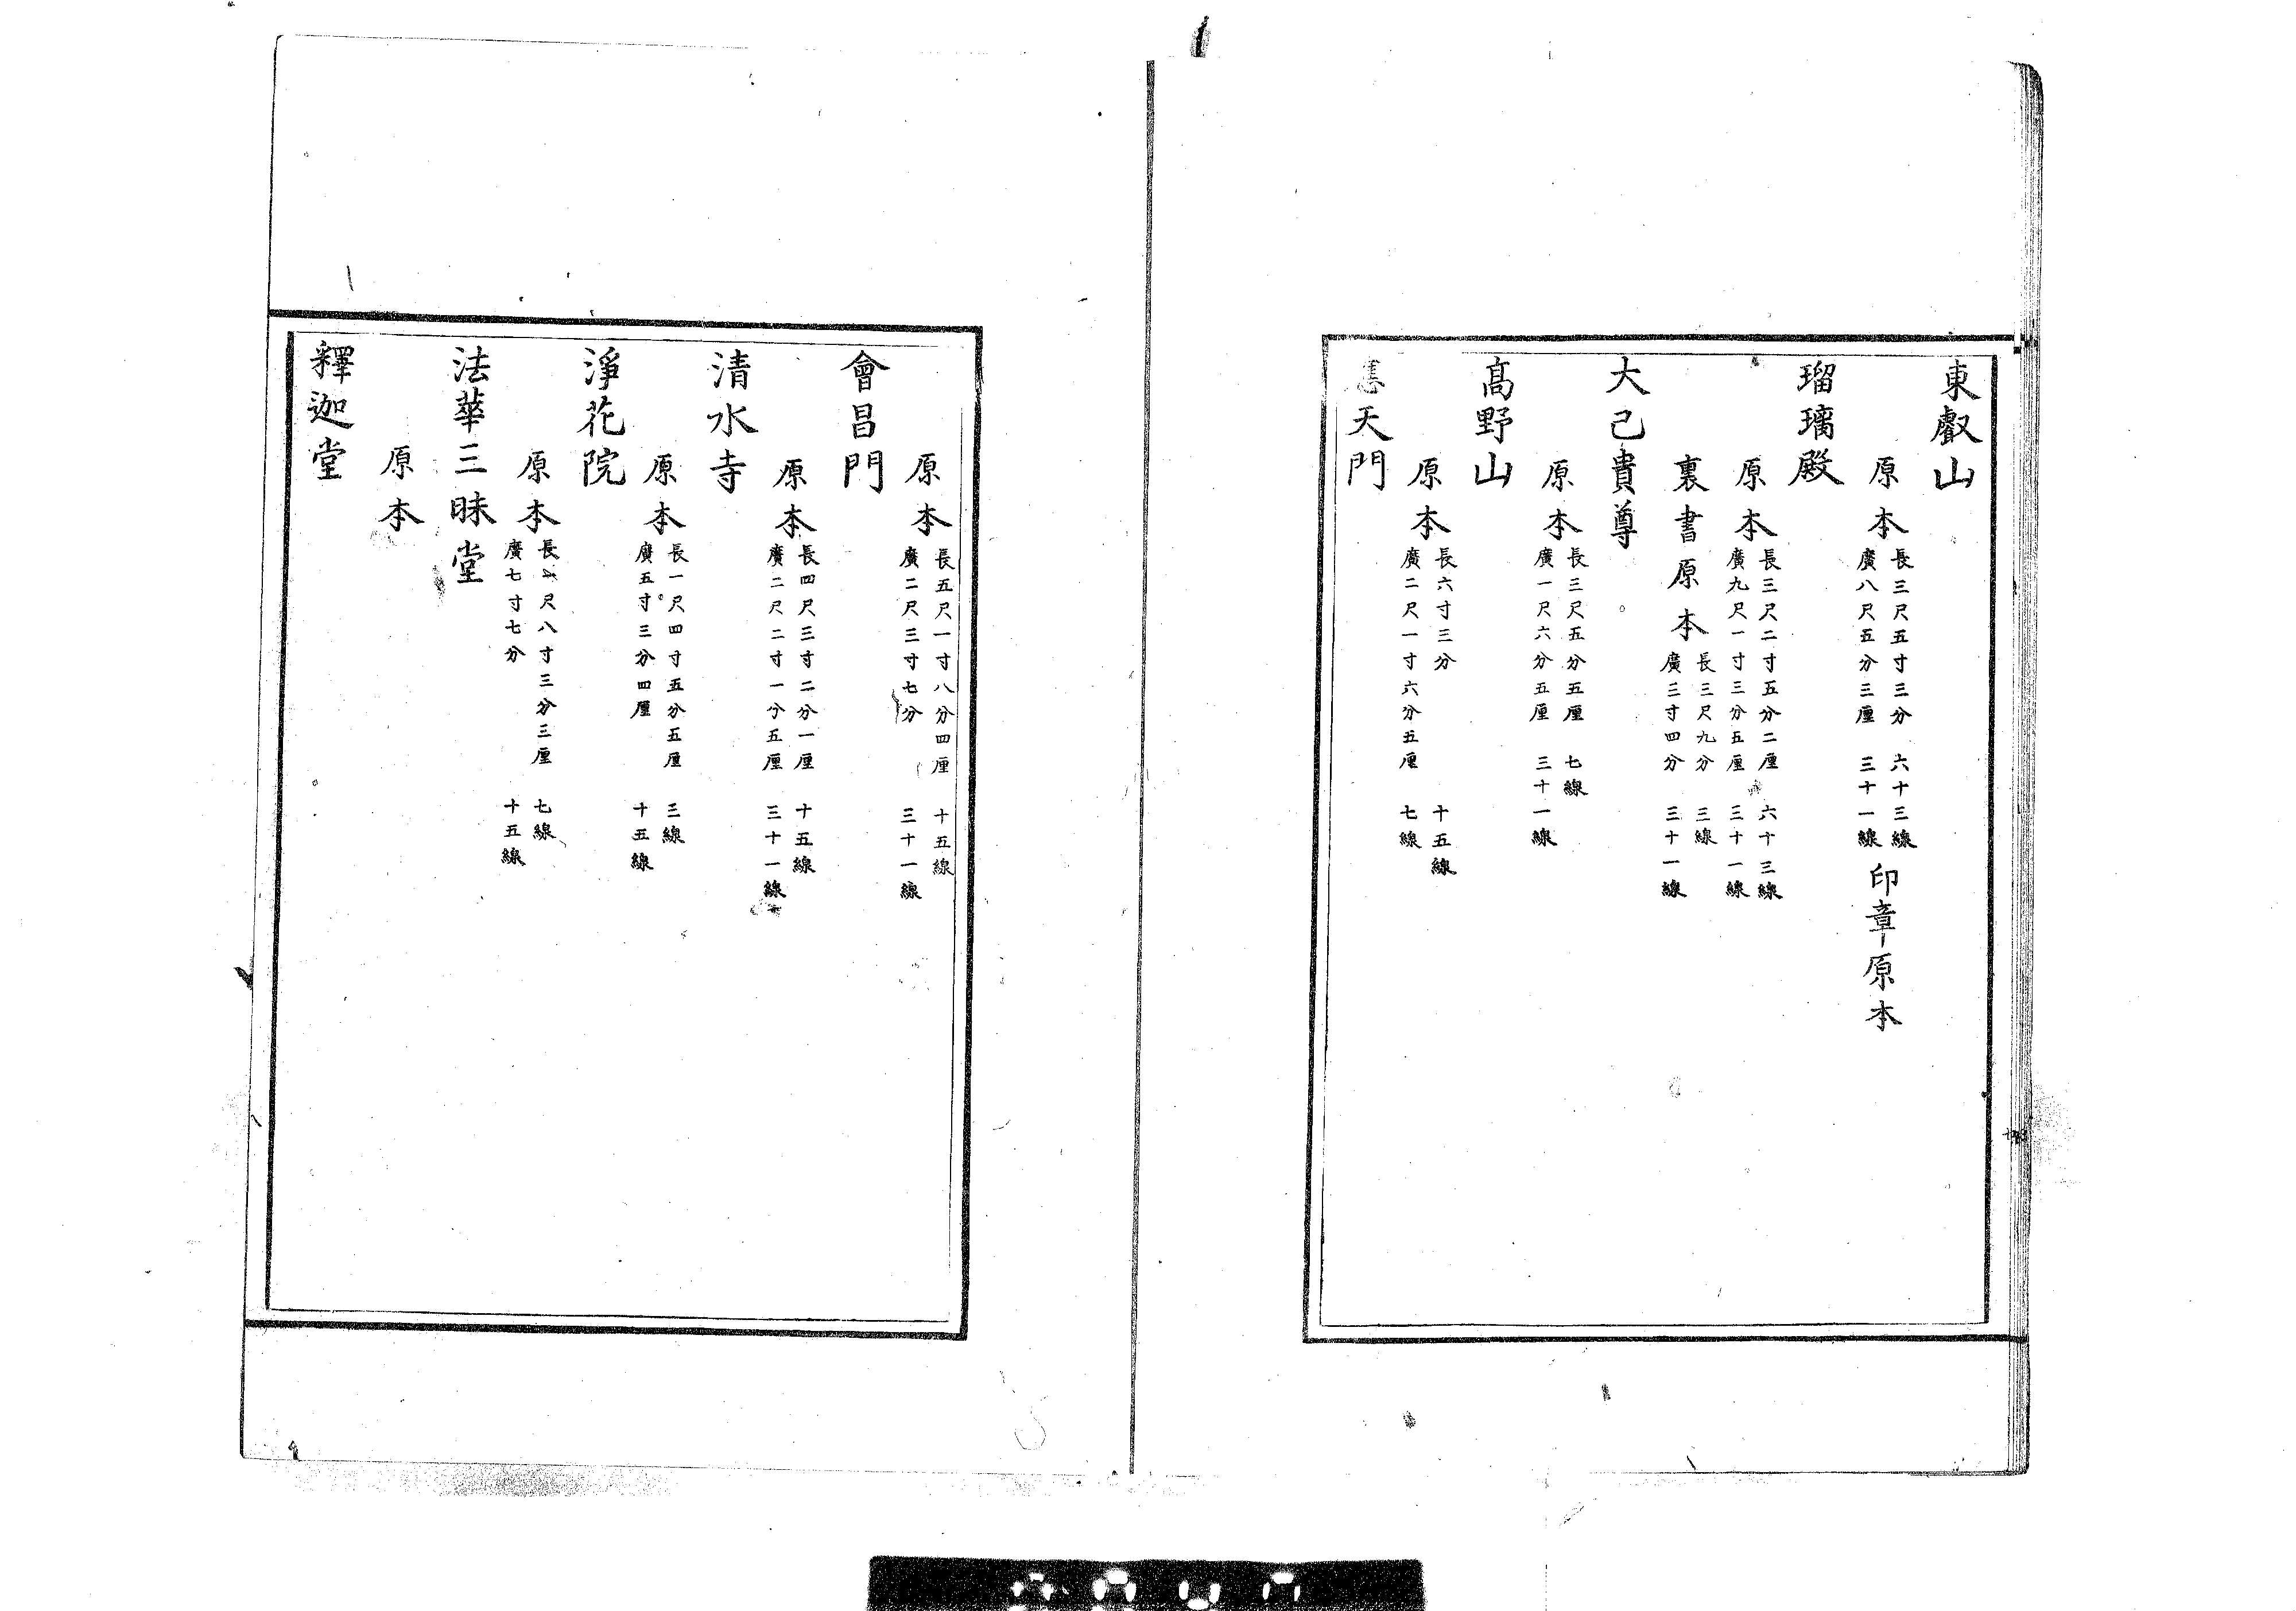 東叡山
原本 長三尺五寸三分 六十三線
廣八尺五分三厘 三十一線 印章原本
瑠璃殿
原本 長三尺二寸五分二厘 六十三線
廣九尺一寸三分五厘 三十一線
裏書原本 長三尺九分 三線
廣三寸四分 三十一線
大己貴尊
原本 長三尺五分五厘 七線
廣一尺六分五厘 三十一線
髙野山
原本 長六寸三分 十五線
廣二尺一寸六分五厘 七線
天門
原本 長五尺一寸八分四厘 十五線
廣二尺三寸七分 三十一線
會昌門
原本 長四尺三寸二分一厘 十五線
廣二尺二寸一分五厘 三十一線
清水寺
原本 長一尺四寸五分五厘 三線
廣五寸三分四厘 十五線
淨花院
原本 長 尺八寸三分三厘 七線
廣七寸七分 十五線
法華三昧堂
原本
釋迦堂